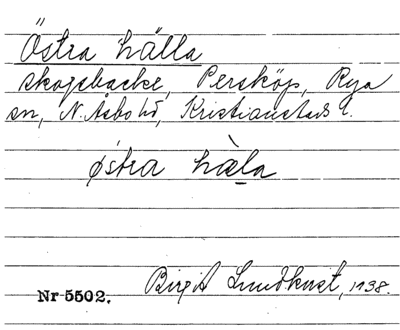 Östra hälla
skogsbacke, Persköp, Rya
sn, N. Åsbo hd, Kristianstads l.
östra hæla
Birgit Lundkvist, 1938.
Nr 5502.